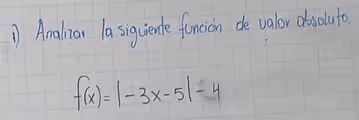 1) Analizar la siguiente función de valor absoluto.
f(x) = |-3x-5| - 4